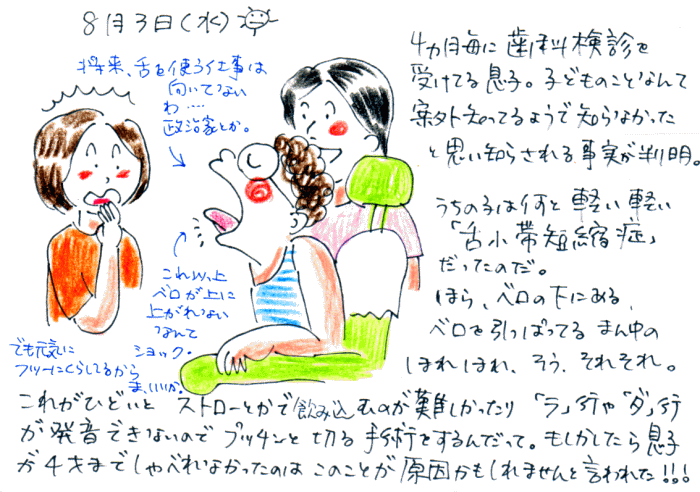 8月3日(水)
将来、舌を使う仕事は
向いてない
わ…
政治家とか。
4カ月毎に歯科検診を
受けてる息子。子どものことなんて
案外知ってるようで知らなかった
と思い知らされる事実が判明。
うちの子は何と軽い軽い
「舌小帯短縮症」
だったのだ。
ほら、ベロの下にある、
ベロを引っぱってるまん中の
ほれほれ、そう、それそれ。
これ以上
ベロが上に
上がれない
なんて
ショック。
でも元気に
フツーにくらしてるから
ま、いいか。
これがひどいとストローとかで飲み込むのが難しかったり「ラ」行や「ダ」行
が発音できないのでプッチンと切る手術をするんだって。もしかしたら息子
が4才までしゃべれなかったのはこのことが原因かもしれませんと言われた!!!